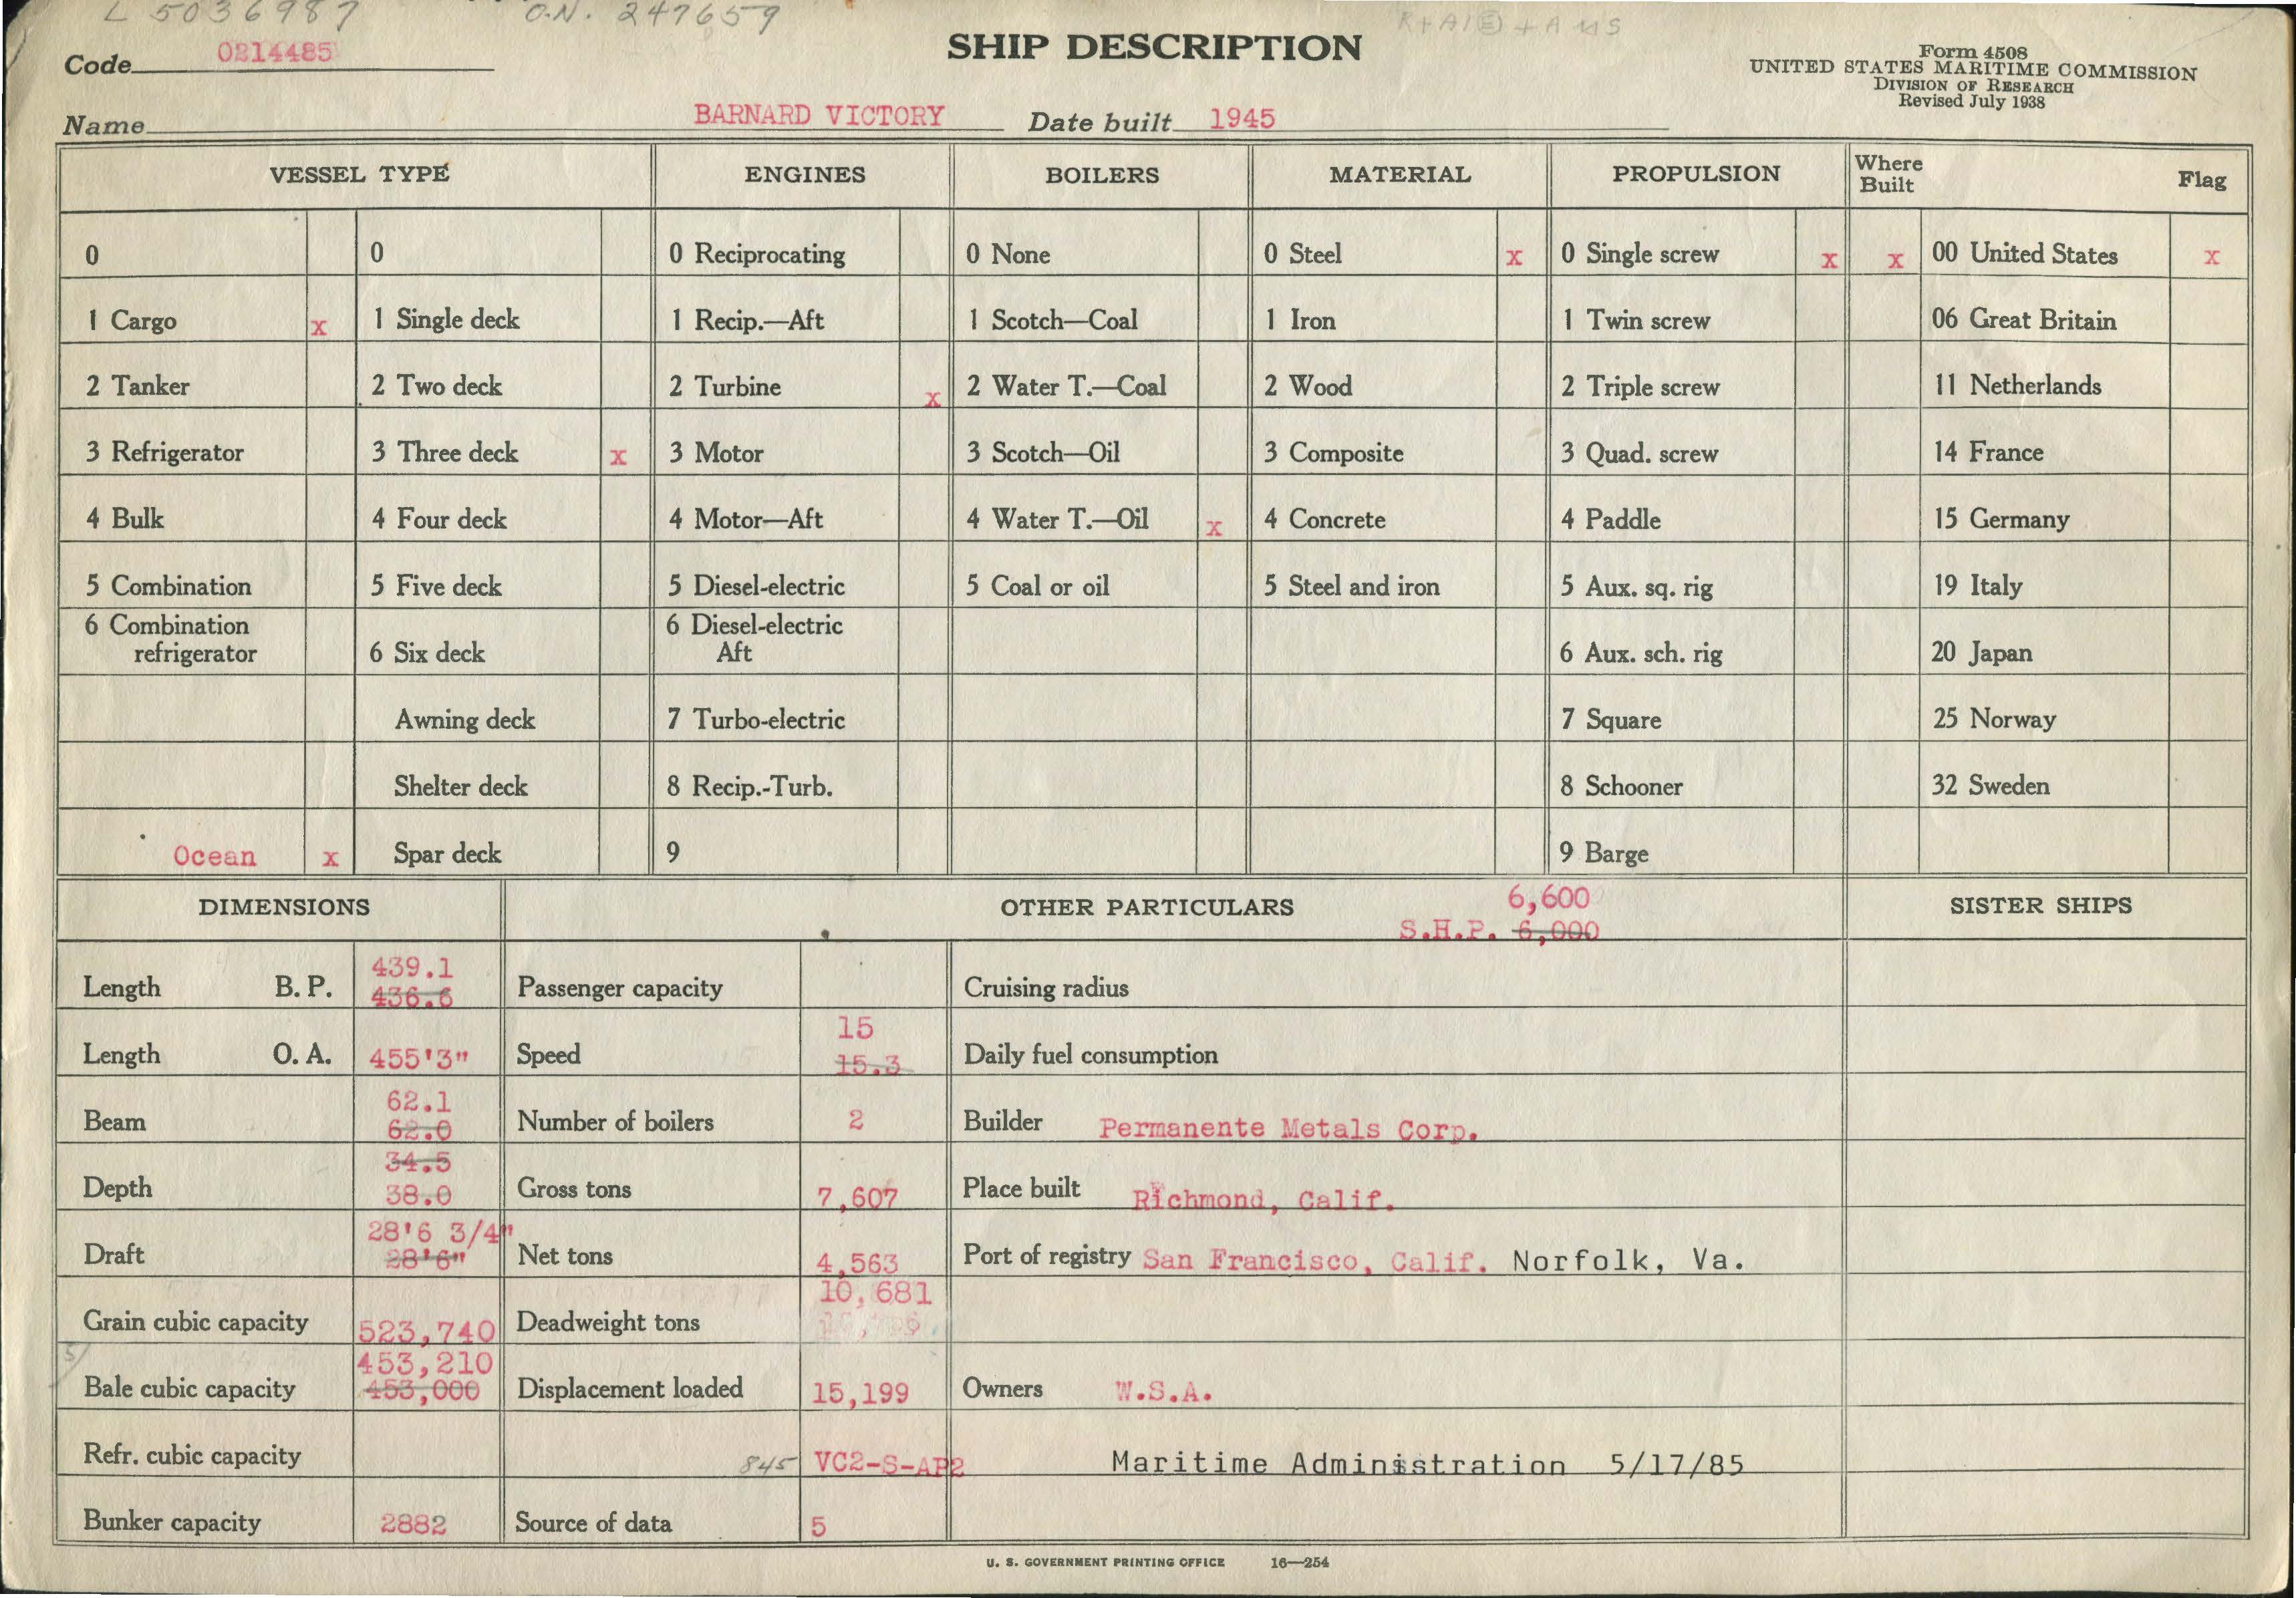 L 5036987 O.N. 247659
SHIP DESCRIPTION
Form 4508
UNITED STATES MARITIME COMMISSION
DIVISION OF RESEARCH
Revised July 1938
Code 0814485
Name BARNARD VICTORY Date built 1945
VESSEL TYPE ENGINES BOILERS MATERIAL PROPULSION Where Built Flag
0 0 0 Reciprocating 0 None 0 Steel x 0 Single screw x x 00 United States x
1 Cargo x 1 Single deck 1 Recip.—Aft 1 Scotch—Coal 1 Iron 1 Twin screw 06 Great Britain
2 Tanker 2 Two deck 2 Turbine x 2 Water T.—Coal 2 Wood 2 Triple screw 11 Netherlands
3 Refrigerator 3 Three deck x 3 Motor 3 Scotch—Oil 3 Composite 3 Quad. screw 14 France
4 Bulk 4 Four deck 4 Motor—Aft 4 Water T.—Oil x 4 Concrete 4 Paddle 15 Germany
5 Combination 5 Five deck 5 Diesel-electric 5 Coal or oil 5 Steel and iron 5 Aux. sq. rig 19 Italy
6 Combination refrigerator 6 Six deck 6 Diesel-electric Aft 6 Aux. sch. rig 20 Japan
Awning deck 7 Turbo-electric 7 Square 25 Norway
Shelter deck 8 Recip.-Turb. 8 Schooner 32 Sweden
Ocean x Spar deck 9 9 Barge
DIMENSIONS OTHER PARTICULARS 6,600 SISTER SHIPS
S.H.P. 6,000
439.1
Length B. P. 436.6 Passenger capacity Cruising radius
15
Length O. A. 455'3" Speed 15.3 Daily fuel consumption
62.1
Beam 62.0 Number of boilers 2 Builder Permanente Metals Corp.
34.5
Depth 38.0 Gross tons 7,607 Place built Richmond, Calif.
28'6 3/4"
Draft 28'6" Net tons 4,563 Port of registry San Francisco, Calif. Norfolk, Va.
10,681
Grain cubic capacity 523,740 Deadweight tons
453,210
Bale cubic capacity 453,000 Displacement loaded 15,199 Owners W.S.A.
Refr. cubic capacity 845 VC2-S-AP2 Maritime Administration 5/17/85
Bunker capacity 2882 Source of data 5
U. S. GOVERNMENT PRINTING OFFICE 16—254